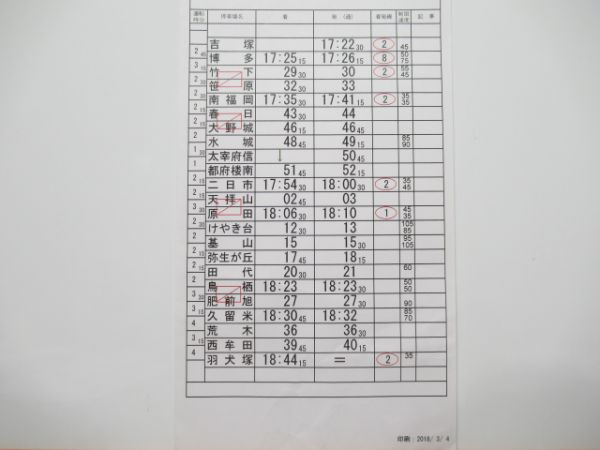 運転時分 停車場名 着 発(通) 着発線 制限速度 記事
吉塚 17:22 30 2 45
2 45
博多 17:25 15 17:26 15 8 50 75
3 15
竹下 29 30 30 2 55 45
2
笹原 32 30 33
2 30
南福岡 17:35 30 17:41 15 2 35 35
2 15
春日 43 30 44
2 15
大野城 46 15 46 45
2
水城 48 45 49 15 85 90
1 30
太宰府信 ↓ 50 45
1
都府楼南 51 45 52 15
2 15
二日市 17:54 30 18:00 30 2 35 45
2 15
天拝山 02 45 03
3 30
原田 18:06 30 18:10 1 45 35
2 30
けやき台 12 30 13 105 85
2
基山 15 15 30 95 105
2 15
弥生が丘 17 45 18 15
2 15
田代 20 30 21 60
2
鳥栖 18:23 18:23 30 50 50
3 30
肥前旭 27 27 30 90
3 15
久留米 18:30 45 18:32 85 70
4
荒木 36 36 30
3 15
西牟田 39 45 40 15
4
羽犬塚 18:44 15 = 2 35
印刷:2018/ 3/ 4